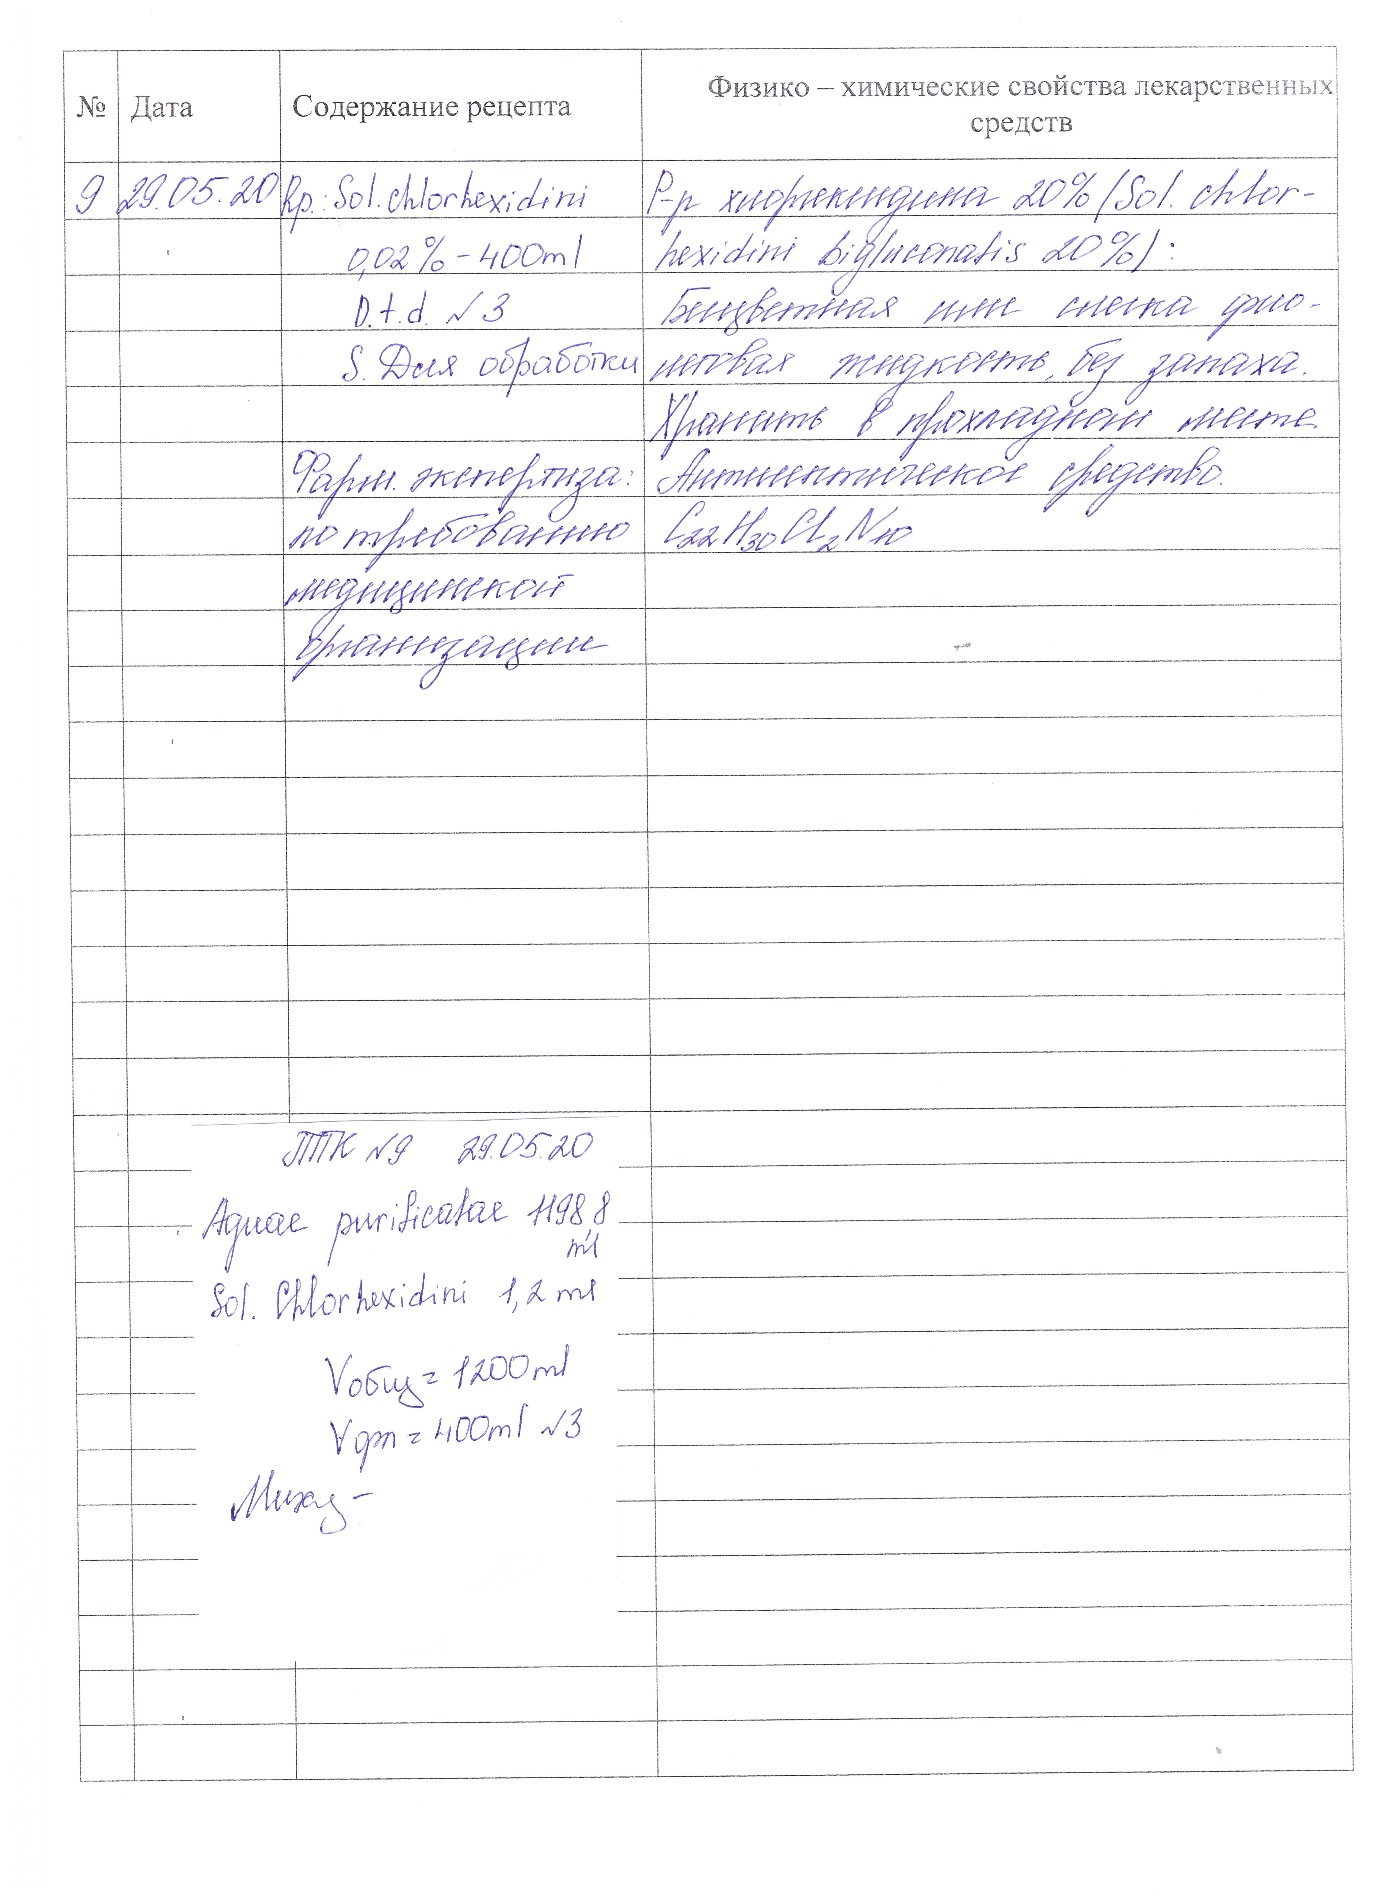 № Дата Содержание рецепта Физико – химические свойства лекарственных
средств
9 29.05.20 Rp.: Sol. chlorhexidini Р-р хлоргексидина 20% (Sol. chlor-
0,02% - 400ml hexidini bigluconatis 20%):
D.t.d. №3 Бесцветная или слегка фио-
S. Для обработки летовая жидкость, без запаха.
Хранить в прохладном месте
Фарм. экспертиза: Антисептическое средство.
по требованию C22H30Cl2N10
медицинской
организации
ППК №9 29.05.20
Aquae purificatae 1198,8
ml
Sol. Chlorhexidini 1,2 ml
Vобщ = 1200ml
Vфл = 400ml №3